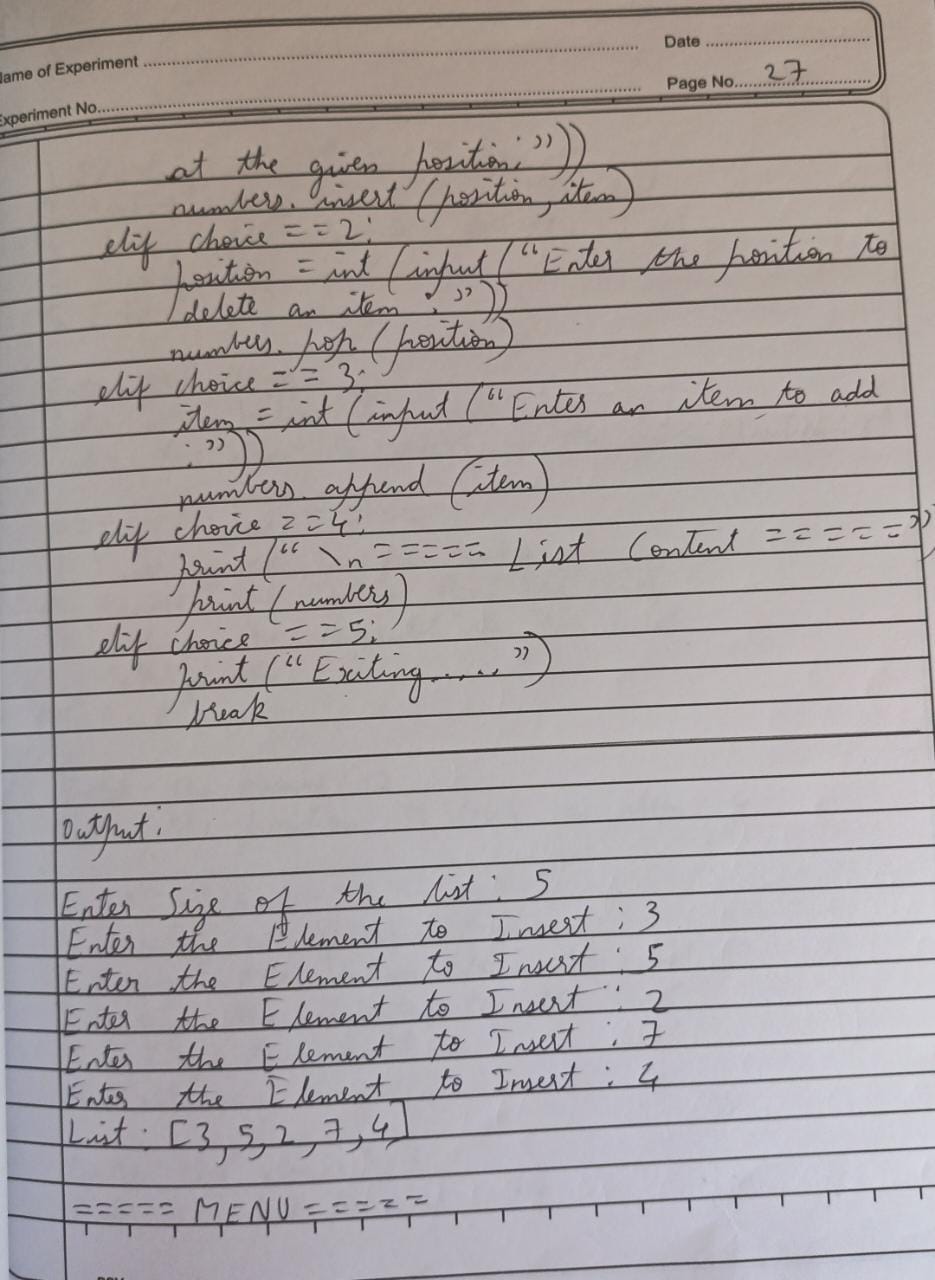 Name of Experiment
Date
Experiment No.
Page No. 27
at the given position:”))
numbers.insert(position,item)
elif choice == 2:
position = int(input(“Enter the position to
delete an item :”))
numbers.pop(position)
elif choice == 3:
item = int(input(“Enter an item to add
:”))
numbers.append(item)
elif choice ==4:
print(“\n===== List Content =====”)
print(numbers)
elif choice ==5:
print(“Exiting.....”)
break
Output:
Enter Size of the list: 5
Enter the Element to Insert: 3
Enter the Element to Insert: 5
Enter the Element to Insert: 2
Enter the Element to Insert: 7
Enter the Element to Insert: 4
List: [3,5,2,7,4]
===== MENU =====